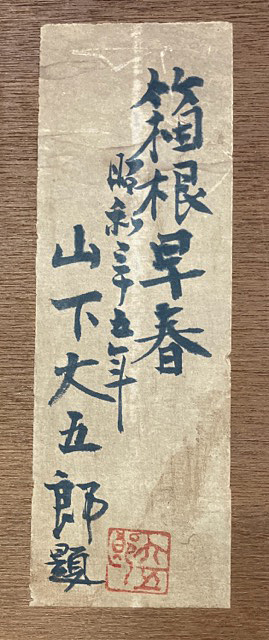 箱根早春
昭和三十五年
山下大五郎題
大五郎